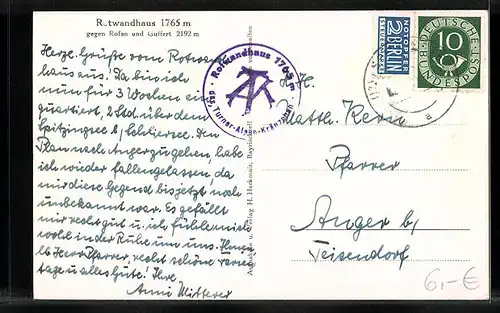 Rotwandhaus 1765 m
gegen Rofan und Guffert 2192 m
Herzl. Grüße vom Rotwand-
haus aus! Da bin ich
nun für 3 Wochen ein-
quartiert, 2 Std. über dem
Spitzingsee b/ Schliersee. Den
Plan nach Anger zu gehen habe
ich wieder fallengelassen, da
mir diese Gegend bis jetzt noch
unbekannt war. Es gefällt
mir recht gut u. ich fühle mich
wohl in der Ruhe um uns.
Herr Pfarrer, recht schöne
tage u. alles Gute! Ihre
Anni Mitterer
Rotwandhaus 1765 m
des Turner-Alpen-Kränzchen
H. H.
Matth. Kern
Pfarrer
Anger b/
Teisendorf
NOTOPFER
2 BERLIN
STEUERMARKE
DEUTSCHE
BUNDESPOST
10
a
Verlag H. Heckmair,
6,-€